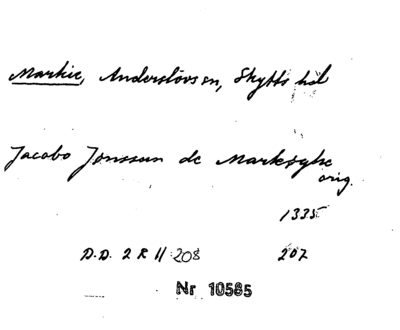 Markie, Anderslövs sn, Skytts hd
Jacobo Jonssun de Markøghe
orig.
1335
D.D. 2 R 11 208 207
Nr 10585